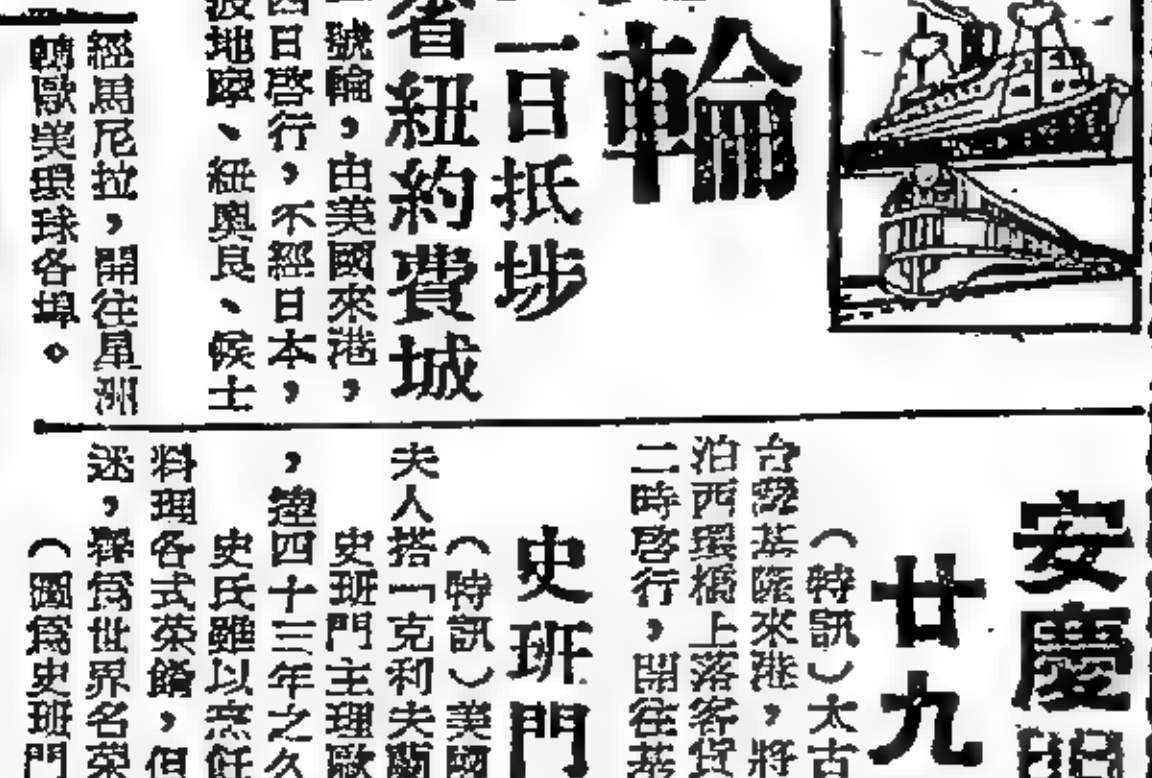 輪
一日抵埗
者紐約費城
號輪，由美國來港，
四日啓行，不經日本，
波地陸、紐奧良、候士
經馬尼拉，開往星洲
轉歐美環球各埠。
安慶開
廿九
（特訊）太古
台灣基隆來港，將
泊西環橋上落客貨
二時啓行，開往基
史班門
（特訊）美國
夫人搭「克利夫蘭
史班門主理歐
，達四十三年之久
史氏雖以烹飪
料理各式菜餚，但
迷，群爲世界名菜
（圖爲史班門